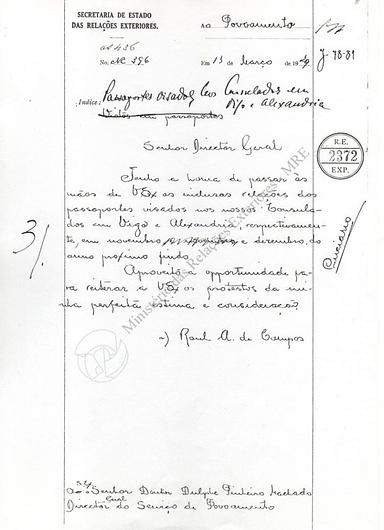 SECRETARIA DE ESTADO
DAS RELAÇÕES EXTERIORES.
AO Povoamento
No. NC 396
EM 13 de Março de 19
J-78-81
Indice: Passaportes visados nos Consulados em
Vigo e Alexandria
Vistos em passaportes
R.E.
2372
EXP.
Senhor Director Geral
Tenho a honra de passar às
mãos de V Ex as inclusas relações dos
passaportes visados nos nossos Consula-
dos em Vigo e Alexandria, respectivamen-
te, em novembro e dezembro, do
anno proximo findo.
Aproveito a opportunidade pa-
ra reiterar a V Ex os protestos da mi-
nha perfeita estima e consideração.
a) Raul A. de Campos
Ministério das Relações Exteriores - MRE
Senhor Doutor Dulphe Pinheiro Machado
Director Geral do Serviço de Povoamento